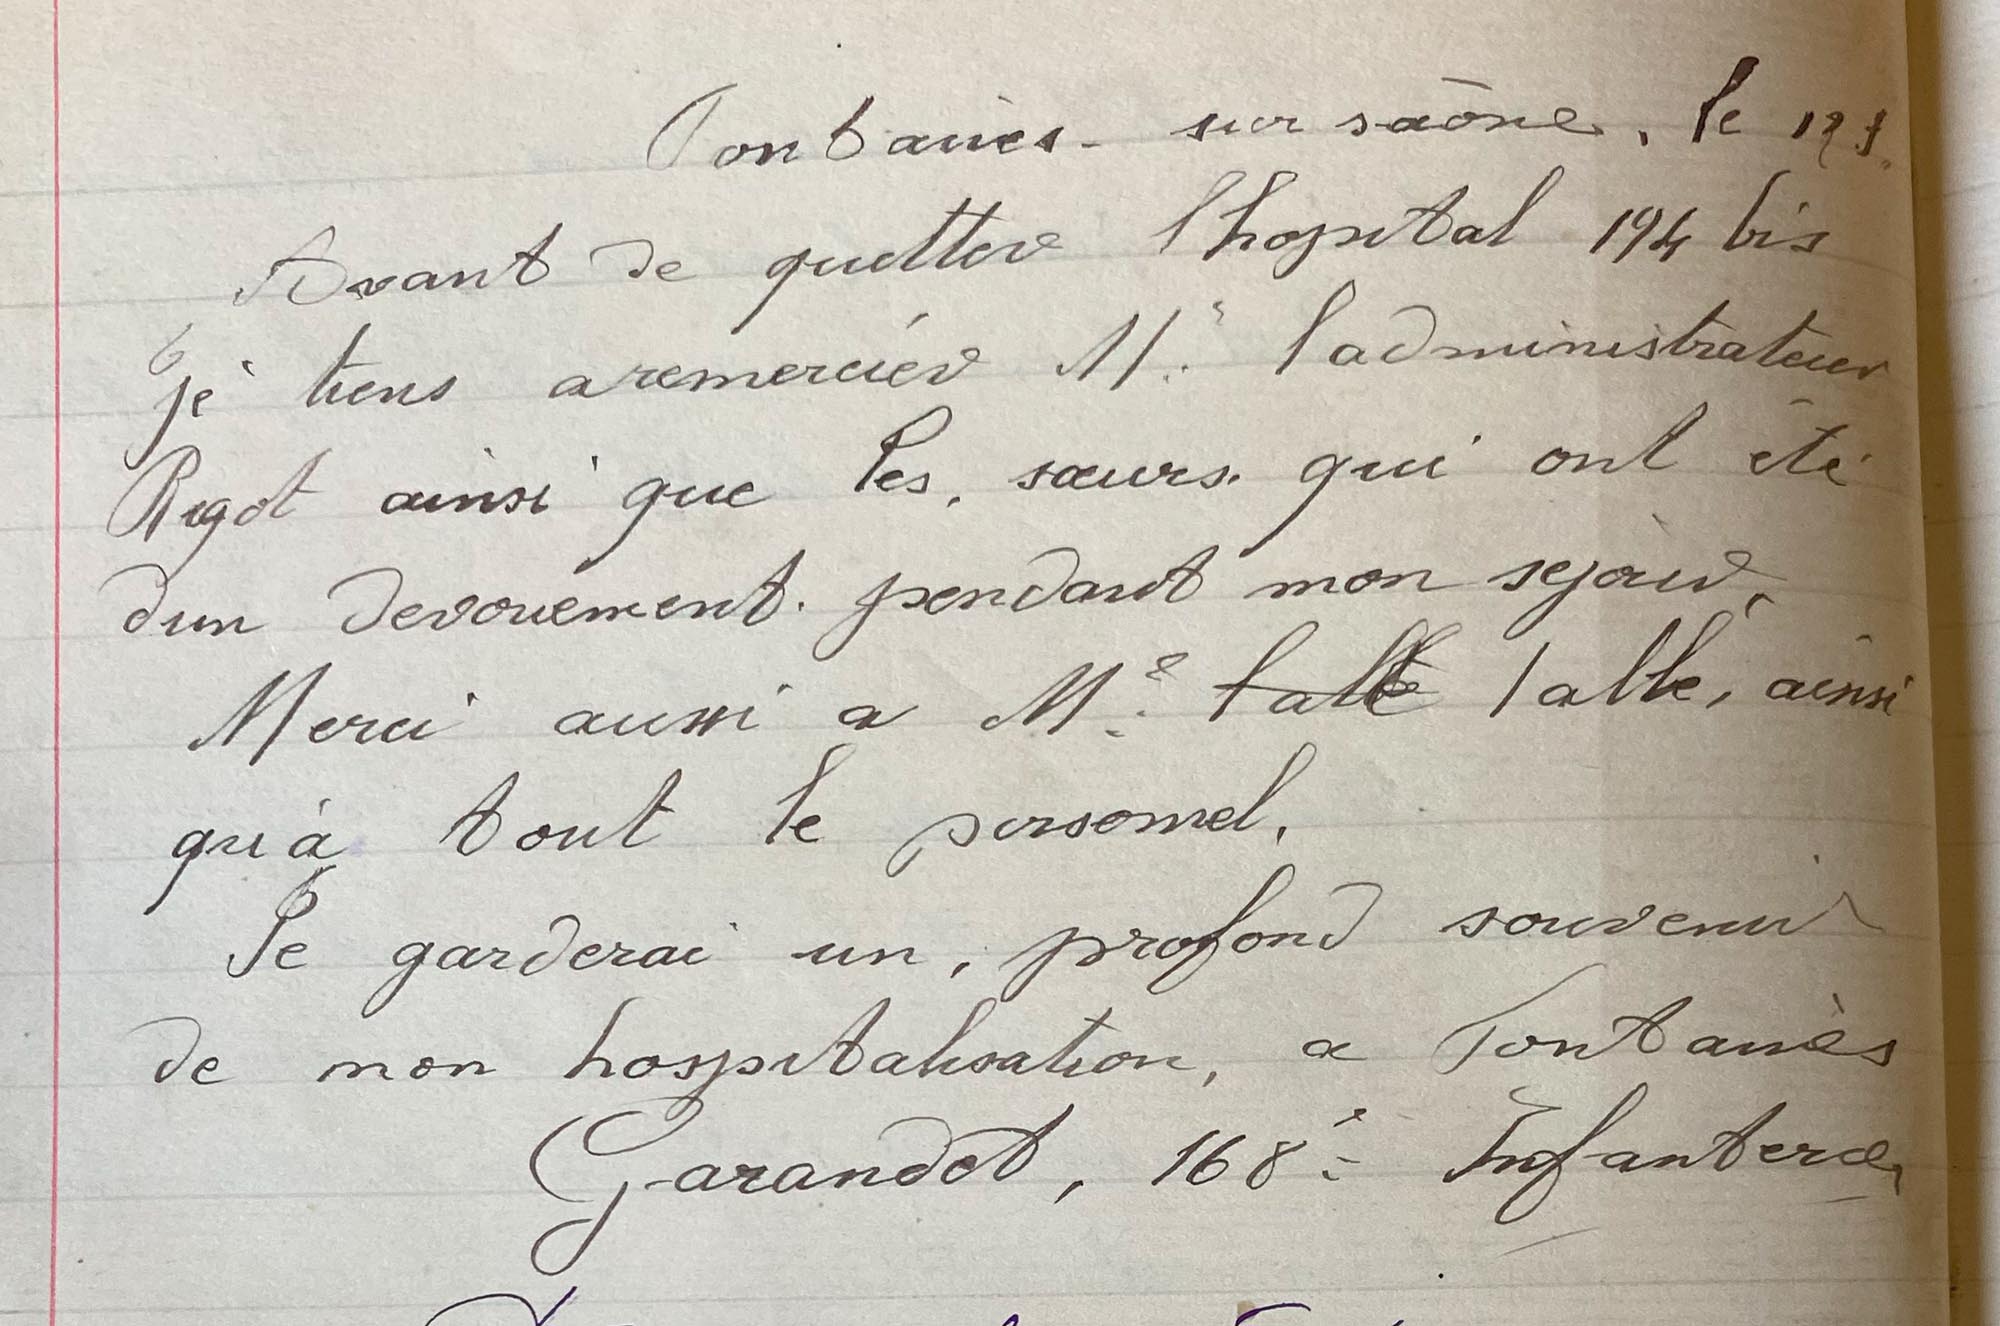 Fontaines-sur saône, le 12
Avant de quitter l'hopital 194 bis
je tiens a remercier Mr. l'administrateur
Rigot ainsi que les, sœurs. qui ont été
d'un devouement. pendant mon sejour,
Merci aussi a Mr. l'abbé l'abbe, ainsi
qu'à tout le personnel.
Je garderai un, profond souvenir
de mon hospitalisation, a Fontaines
Garandet, 168e Infanterie,